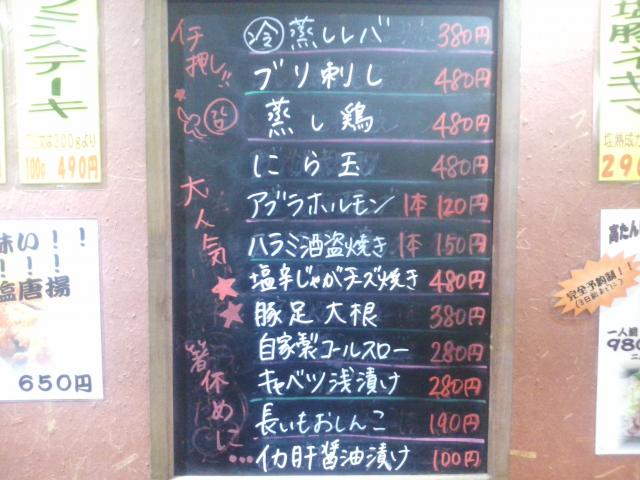 ラミステーキ
100g 490円
味い！！
！！！
塩唐揚
650円
イチ押し!!
大人気
箸休めに…
冷 蒸しレバ 380円
ブリ刺し 480円
蒸し鶏 480円
にら玉 480円
アブラホルモン 1本 120円
ハラミ酒盗焼き 1本 150円
塩辛じゃがチーズ焼き 480円
豚足大根 380円
自家製コールスロー 280円
キャベツ浅漬け 280円
長いもおしんこ 190円
イカ肝醤油漬け 100円
塩豚ネギマ
塩熟成
290
高たん
完全予約制！！
(3日前までに)
一人前
980